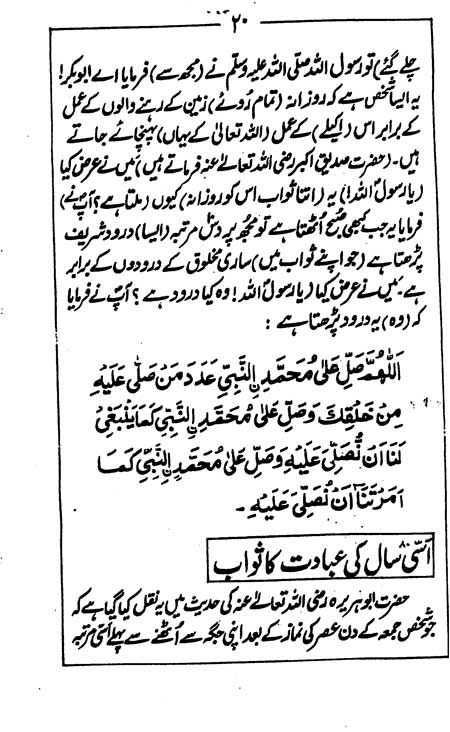 ۲۰
چلے گئے) تو رسول اللہ صلی اللہ علیہ وسلم نے (مجھ سے) فرمایا اے ابوبکر!
یہ ایسا شخص ہے کہ روزانہ (تمام روئے) زمین کے رہنے والوں کے عمل
کے برابر اس (اکیلے) کے عمل (اللہ تعالیٰ کے یہاں) پہنچائے جاتے
ہیں۔ (حضرت صدیق اکبر رضی اللہ تعالےٰ عنہ فرماتے ہیں) میں نے عرض کیا
(یا رسول اللہ!) یہ (اتنا ثواب اس کو روزانہ) کیوں (ملتا ہے؟ آپ نے)
فرمایا یہ جب کبھی صبح اُٹھتا ہے تو مجھ پر دس مرتبہ (ایسا) درود شریف
پڑھتا ہے (جو اپنے ثواب میں) ساری مخلوق کے درودوں کے برابر
ہے۔ میں نے عرض کیا (یا رسول اللہ! وہ کیا درود ہے؟ آپ نے فرمایا
کہ (وہ) یہ درود پڑھتا ہے :
اَللّٰهُمَّ صَلِّ عَلٰى مُحَمَّدِ ۣالنَّبِيِّ عَدَدَ مَنْ صَلّٰى عَلَيْهِ
مِنْ خَلْقِكَ وَصَلِّ عَلٰى مُحَمَّدِ ۣالنَّبِيِّ كَمَا يَنْبَغِيْ
لَنَا اَنْ نُّصَلِّيَ عَلَيْهِ وَصَلِّ عَلٰى مُحَمَّدِ ۣالنَّبِيِّ كَمَا
اَمَرْتَنَا اَنْ نُصَلِّيَ عَلَيْهِ ۔
اَسّی ۸۰ سال کی عبادت کا ثواب
حضرت ابوہریرہ رضی اللہ تعالےٰ عنہ کی حدیث میں یہ نقل کیا گیا ہے کہ
جو شخص جمعہ کے دن عصر کی نماز کے بعد اپنی جگہ سے اُٹھنے سے پہلے اَسّی مرتبہ